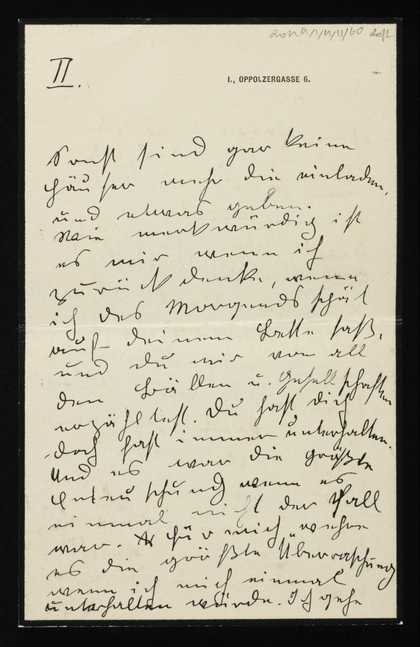 II.
I., OPPOLZERGASSE 6.
Sonst sind gar keine
Häuser mehr die einladen,
und etwas geben.
Wie merkwürdig ist
es mir wenn ich
zurück denke, wenn
ich des Morgends spät
auf deinem Bette saß,
und du mir von all
den Bällen u. Gesellschaften
erzähltest. Du hast dich
doch fast immer unterhalten.
Und es war die größte
Enteuschung wenn es
einmal nicht der Fall
war. Für mich wehre
es die größte Überraschung
wenn ich mich einmal
unterhalten würde. Ich gehe